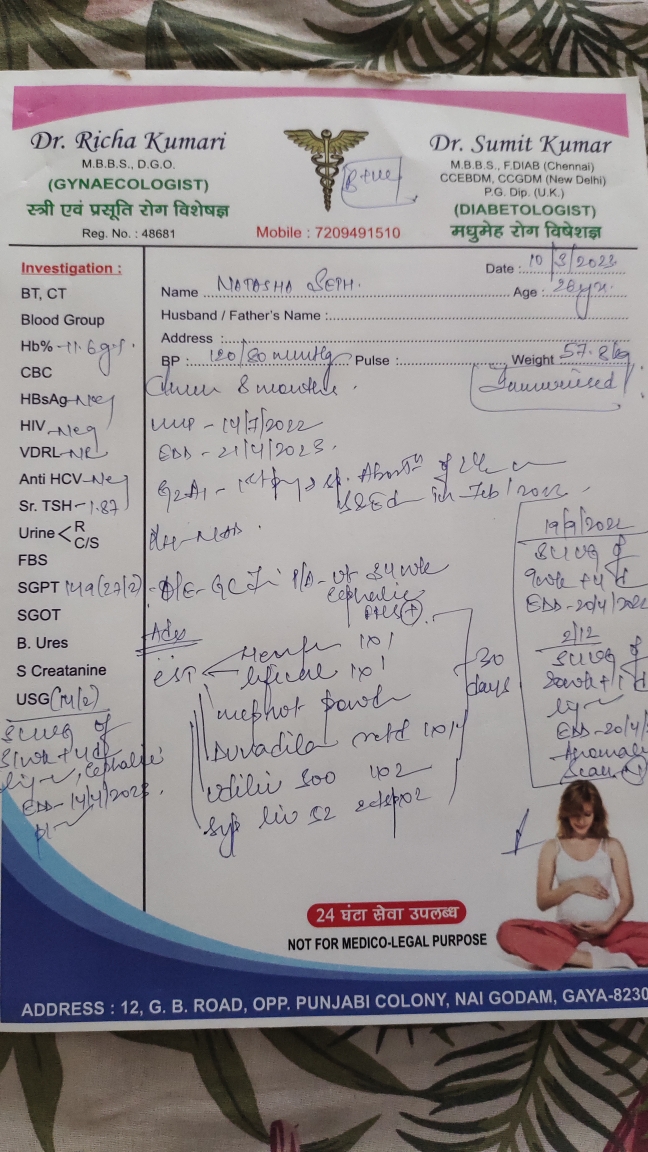 Dr. Richa Kumari
M.B.B.S., D.G.O.
(GYNAECOLOGIST)
स्त्री एवं प्रसूति रोग विशेषज्ञ
Reg. No. : 48681
B+ve
Mobile : 7209491510
Dr. Sumit Kumar
M.B.B.S., F.DIAB (Chennai)
CCEBDM, CCGDM (New Delhi)
P.G. Dip. (U.K.)
(DIABETOLOGIST)
मधुमेह रोग विषेशज्ञ
Date : 10/3/2023
Name NATASHA SETH. Age : 28yr.
Husband / Father's Name :
Address :
BP : 120/80 mmHg Pulse : Weight 57.8kg
Investigation :
BT, CT
Blood Group
Hb% - 11.6g%
CBC
HBsAg - Neg
HIV - Neg
VDRL - NR
Anti HCV - Neg
Sr. TSH - 1.87
Urine < R
C/S
FBS
SGPT 149 (27/2)
SGOT
B. Ures
S Creatanine
USG (14/2)
SLIUG of
31wk + 4d
Cephalic
EDD - 14/4/2023.
8 months.
Immunised
LMP - 14/7/2022
EDD - 21/4/2023.
G2A1 -
in Feb/2022.
O/E - GC Fi P/A - ut 34 wk
Cephalic
FHS (+)
Adv
1x1
1x1
powder
Duvadilan retd 1x1
Udiliv 300 1x2
Syp liv 52 2tspx2
30
days
19/9/2022
SLIUG of
9wk + 4d
EDD - 20/4/202
2/12
SLIUG of
20wk + 1d
EDD - 20/4/
Anomaly
Scan
24 घंटा सेवा उपलब्ध
NOT FOR MEDICO-LEGAL PURPOSE
ADDRESS : 12, G. B. ROAD, OPP. PUNJABI COLONY, NAI GODAM, GAYA-8230